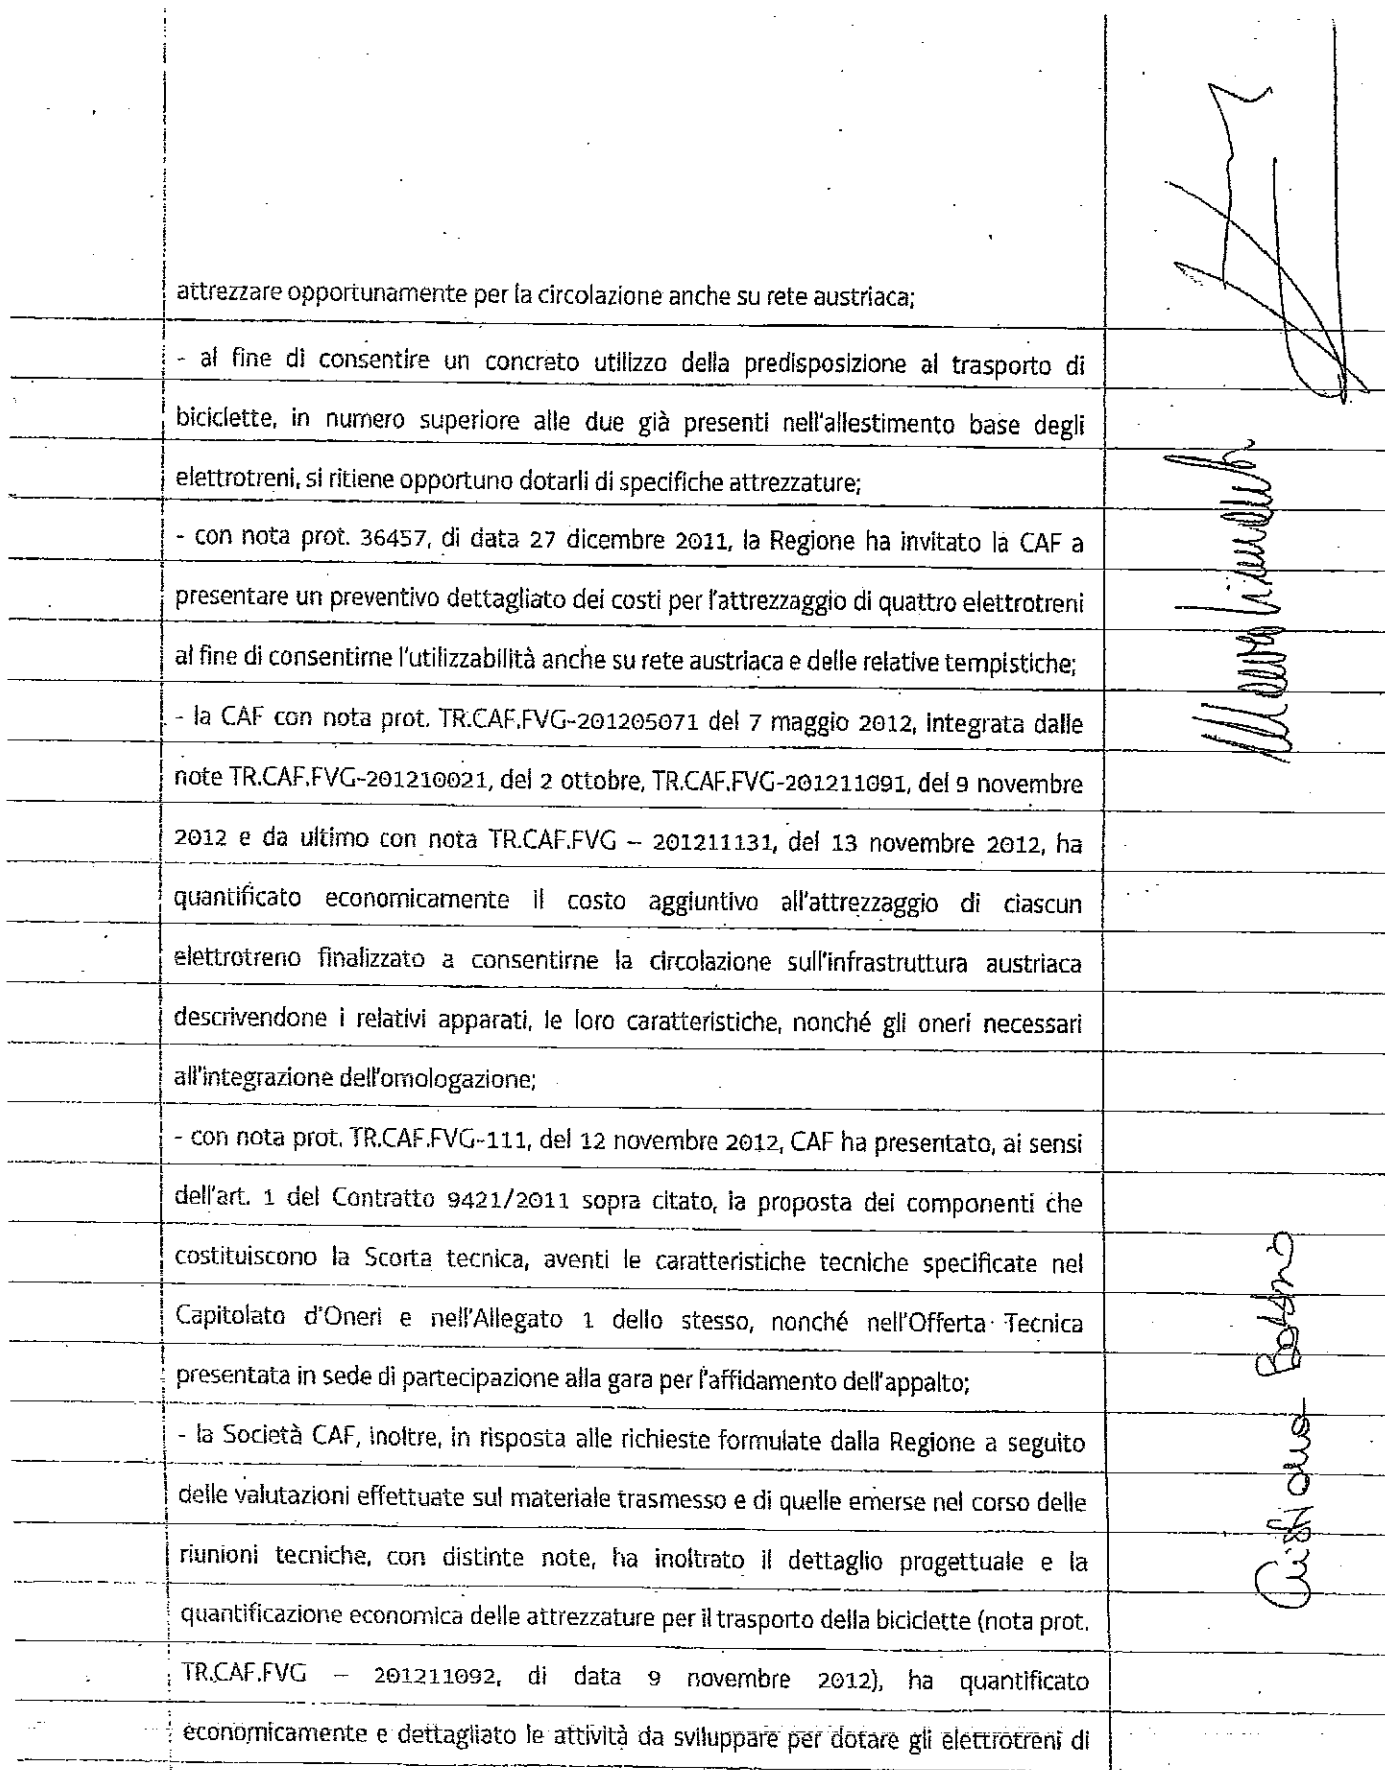 attrezzare opportunamente per la circolazione anche su rete austriaca;
- al fine di consentire un concreto utilizzo della predisposizione al trasporto di
biciclette, in numero superiore alle due già presenti nell'allestimento base degli
elettrotreni, si ritiene opportuno dotarli di specifiche attrezzature;
- con nota prot. 36457, di data 27 dicembre 2011, la Regione ha invitato la CAF a
presentare un preventivo dettagliato dei costi per l'attrezzaggio di quattro elettrotreni
al fine di consentirne l'utilizzabilità anche su rete austriaca e delle relative tempistiche;
- la CAF con nota prot. TR.CAF.FVG-201205071 del 7 maggio 2012, integrata dalle
note TR.CAF.FVG-201210021, del 2 ottobre, TR.CAF.FVG-201211091, del 9 novembre
2012 e da ultimo con nota TR.CAF.FVG – 201211131, del 13 novembre 2012, ha
quantificato economicamente il costo aggiuntivo all'attrezzaggio di ciascun
elettrotreno finalizzato a consentirne la circolazione sull'infrastruttura austriaca
descrivendone i relativi apparati, le loro caratteristiche, nonché gli oneri necessari
all'integrazione dell'omologazione;
- con nota prot. TR.CAF.FVG-111, del 12 novembre 2012, CAF ha presentato, ai sensi
dell'art. 1 del Contratto 9421/2011 sopra citato, la proposta dei componenti che
costituiscono la Scorta tecnica, aventi le caratteristiche tecniche specificate nel
Capitolato d'Oneri e nell'Allegato 1 dello stesso, nonché nell'Offerta Tecnica
presentata in sede di partecipazione alla gara per l'affidamento dell'appalto;
- la Società CAF, inoltre, in risposta alle richieste formulate dalla Regione a seguito
delle valutazioni effettuate sul materiale trasmesso e di quelle emerse nel corso delle
riunioni tecniche, con distinte note, ha inoltrato il dettaglio progettuale e la
quantificazione economica delle attrezzature per il trasporto della biciclette (nota prot.
TR.CAF.FVG – 201211092, di data 9 novembre 2012), ha quantificato
economicamente e dettagliato le attività da sviluppare per dotare gli elettrotreni di